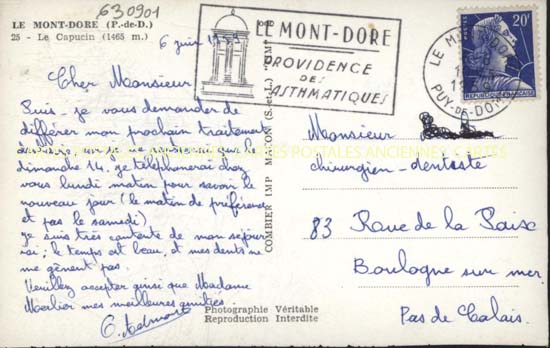 630901
LE MONT-DORE (P.-de-D.)
25 - Le Capucin (1465 m.)
6 juin 1959
Cher Monsieur
Puis-je vous demander de
différer mon prochain traitement
dentaire, car je ne rentrerai que le
dimanche 14. je téléphonerai chez
vous lundi matin pour savoir le
nouveau jour (le matin de préférence
et pas le samedi)
je suis très contente de mon séjour
ici; le temps est beau, et mes dents ne
me gênent pas.
Veuillez accepter ainsi que Madame
Merlier mes meilleures amitiés.
Photographie Véritable
Reproduction Interdite
COMBIER IMP MACON (S.-et-L.)
LE MONT-DORE
PROVIDENCE
DES
ASTHMATIQUES
LE MONT-DORE
PUY-DE-DOME
POSTES
20F
REPUBLIQUE FRANÇAISE
Monsieur
chirurgien-dentiste
83 Rue de la Paix
Boulogne sur mer
Pas de Calais.
CARTES POSTALES ANCIENNES CARTES